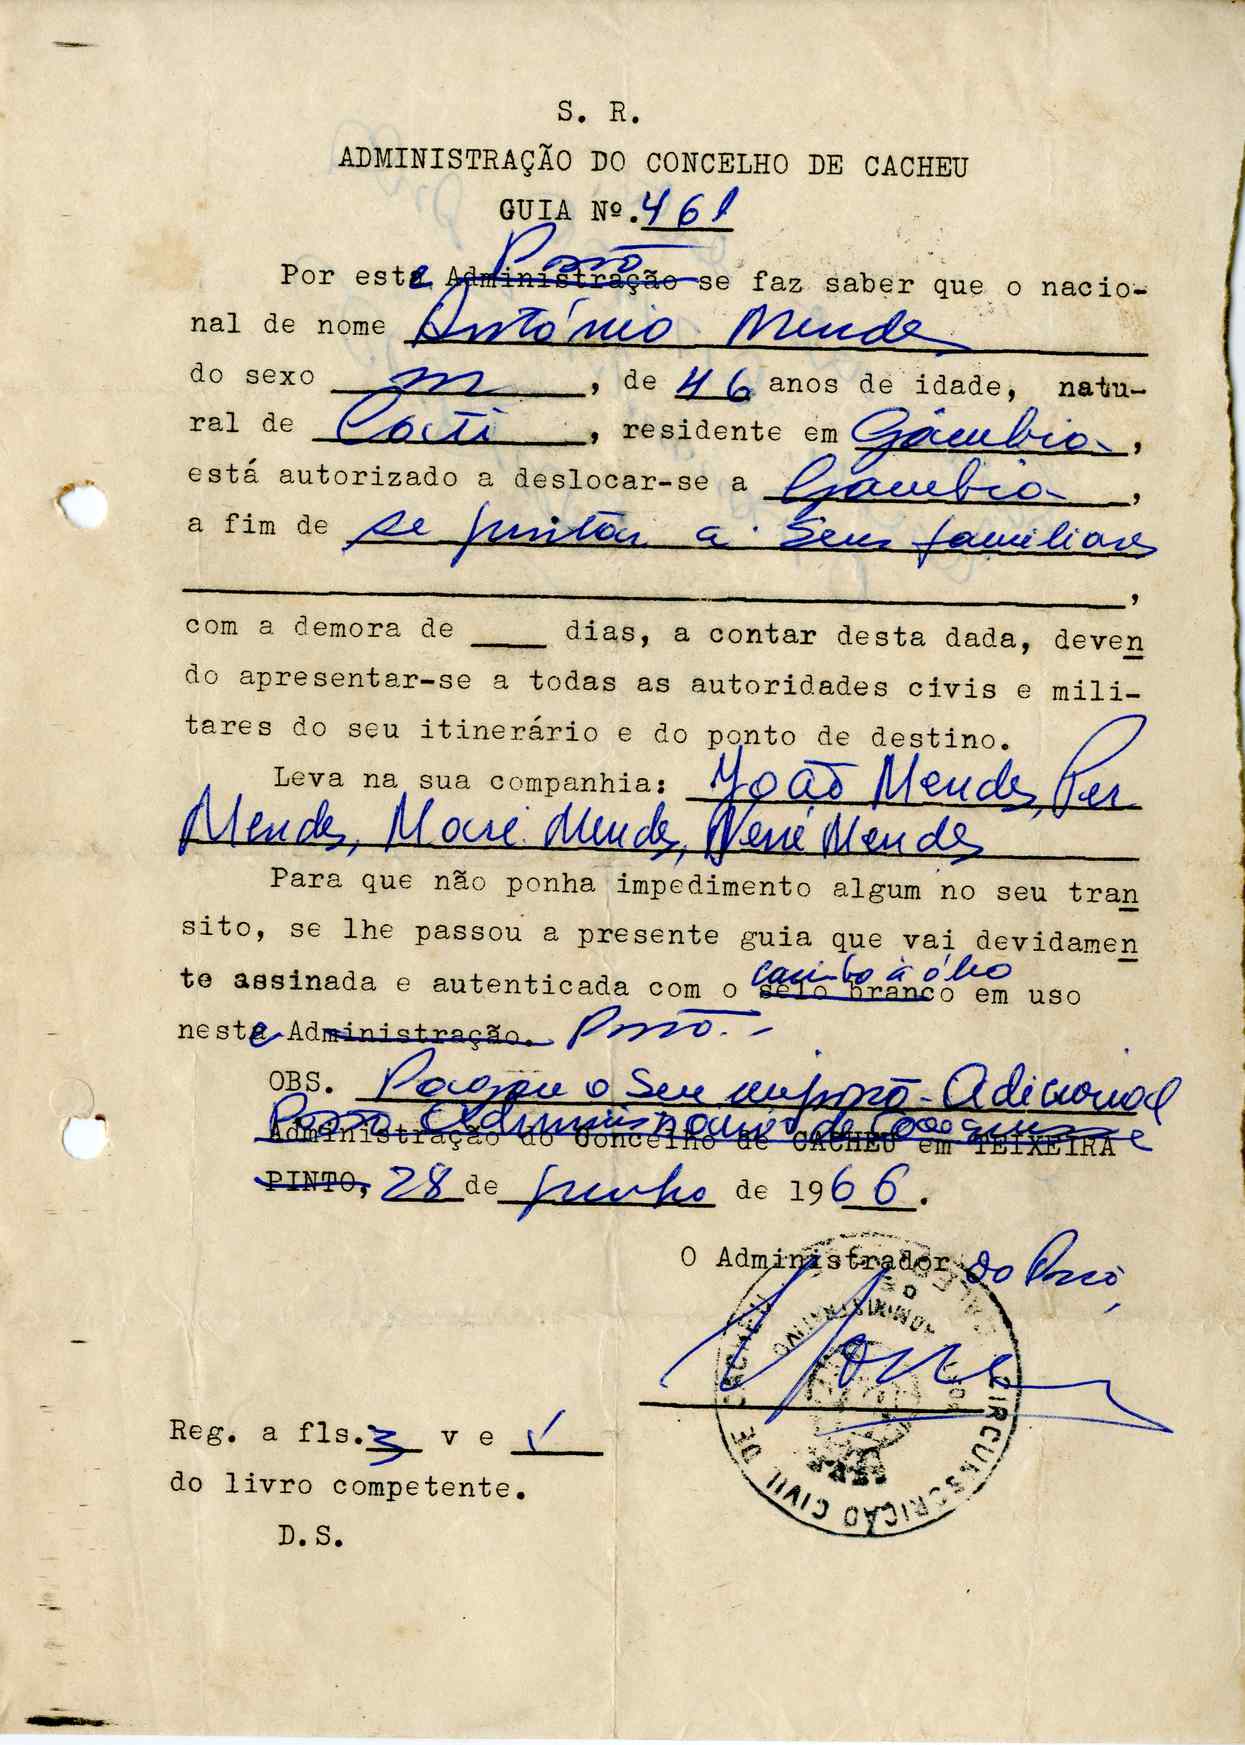 S. R.
ADMINISTRAÇÃO DO CONCELHO DE CACHEU
GUIA Nº. 461
Posto
Por este Administração se faz saber que o nacio-
nal de nome António Mendes
do sexo m, de 46 anos de idade, natu-
ral de, residente em Gâmbia,
está autorizado a deslocar-se a Gâmbia,
a fim de se juntar a seus familiares
,
com a demora de ____ dias, a contar desta dada, deven
do apresentar-se a todas as autoridades civis e mili-
tares do seu itinerário e do ponto de destino.
Leva na sua companhia: João Mendes,
Mendes, Mendes, Mendes
Para que não ponha impedimento algum no seu tran
sito, se lhe passou a presente guia que vai devidamen
carimbo à óleo
te assinada e autenticada com o selo branco em uso
neste Administração. Posto.-
OBS. Pagou o seu imposto - Adicional
Posto Administrativo de
Administração do Concelho de CACHEU em TEIXEIRA
PINTO, 28 de junho de 1966.
O Administrador do Posto,
CIRCUNSCRIÇÃO CIVIL DE CACHEU
ADMINISTRATIVO
Reg. a fls. 3 v e
do livro competente.
D.S.